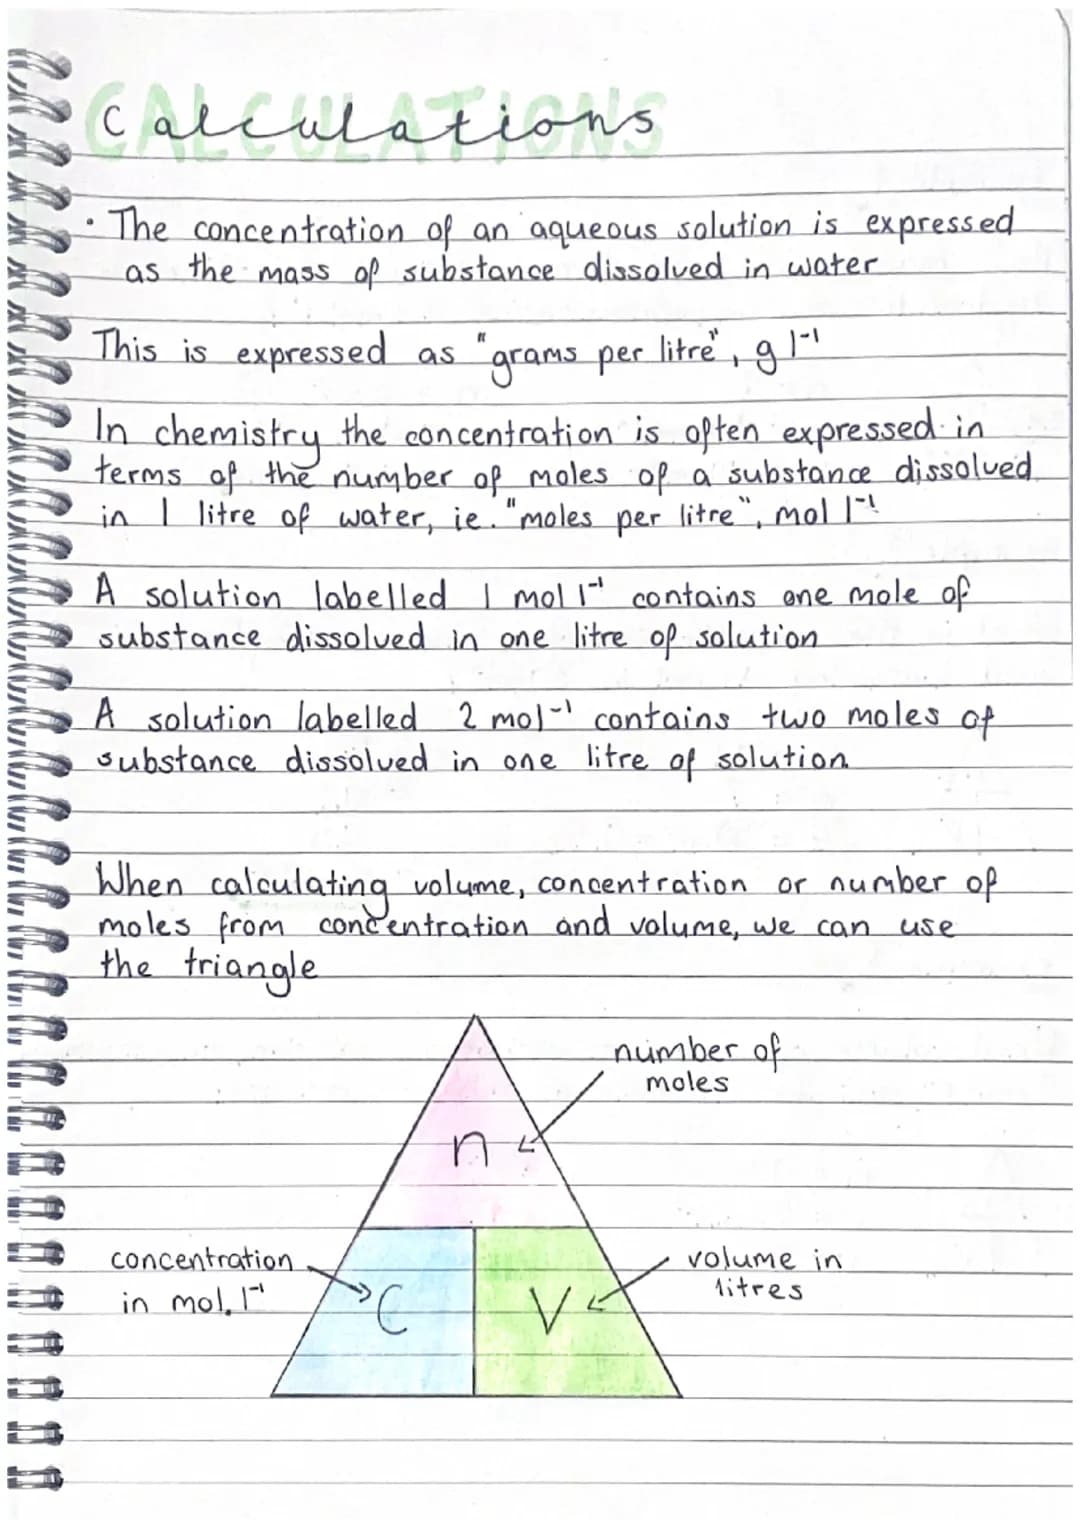 CALCULATIONS
Calculations
· The concentration of an aqueous solution is expressed
as the mass of substance dissolved in water
This is expressed as "grams per litre", g l⁻¹
In chemistry the concentration is often expressed in
terms of the number of moles of a substance dissolved
in 1 litre of water, ie. "moles per litre", mol l⁻¹
A solution labelled 1 mol l⁻¹ contains one mole of
substance dissolved in one litre of solution
A solution labelled 2 mol⁻¹ contains two moles of
substance dissolved in one litre of solution
When calculating volume, concentration or number of
moles from concentration and volume, we can use
the triangle
number of
moles
n
concentration
in mol. l⁻¹
C
V
volume in
litres